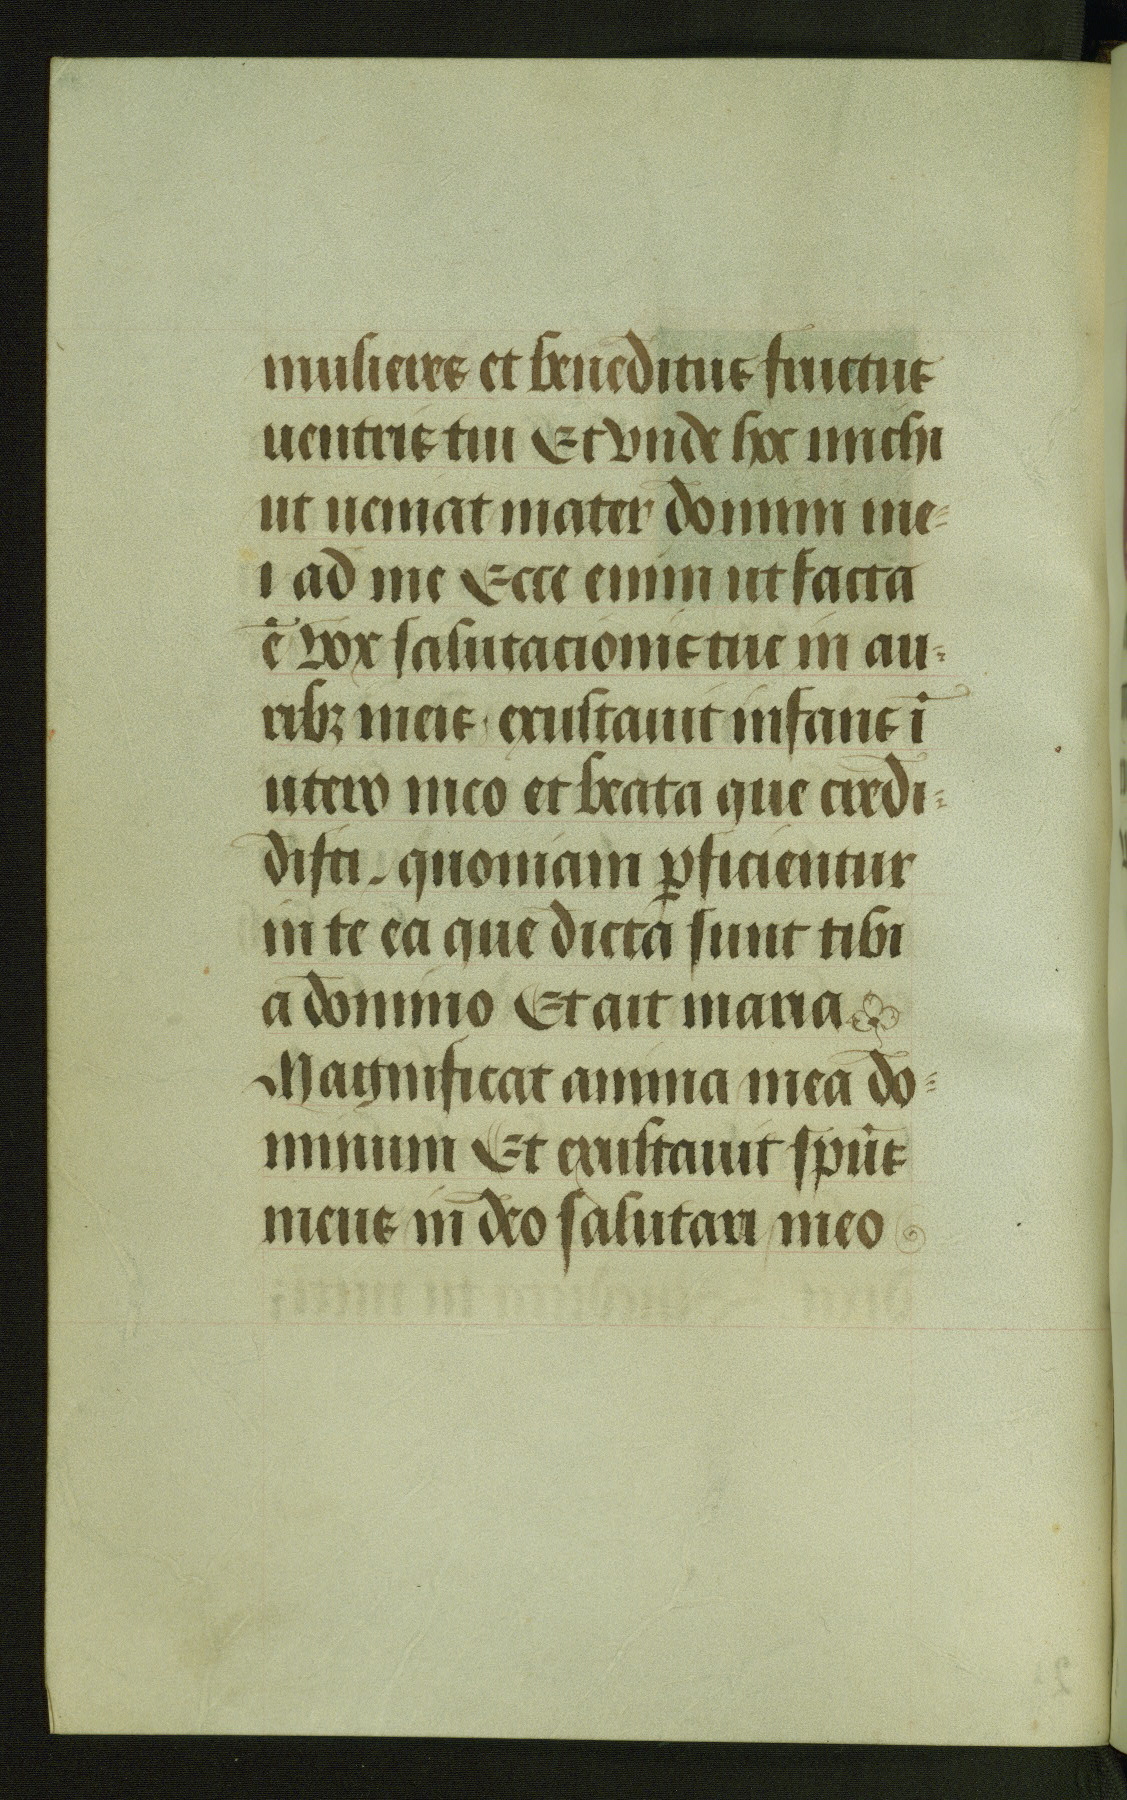 mulieres et beneditus fructus
uentris tui Et vnde hoc michi
ut ueniat mater domini me=
i ad me Ecce enim ut facta
ē vox salutacionis tue in au=
ribꝫ meis exultauit infans ī
utero meo et beata que credi=
disti. quoniam ꝑficientur
in te ea que dicta sunt tibi
a domino Et ait maria
Magnificat anima mea do=
minum Et exultauit spūs
meus in deo salutari meo